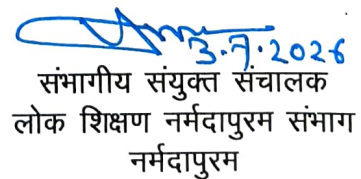 3.7.2026
संभागीय संयुक्त संचालक
लोक शिक्षण नर्मदापुरम संभाग
नर्मदापुरम